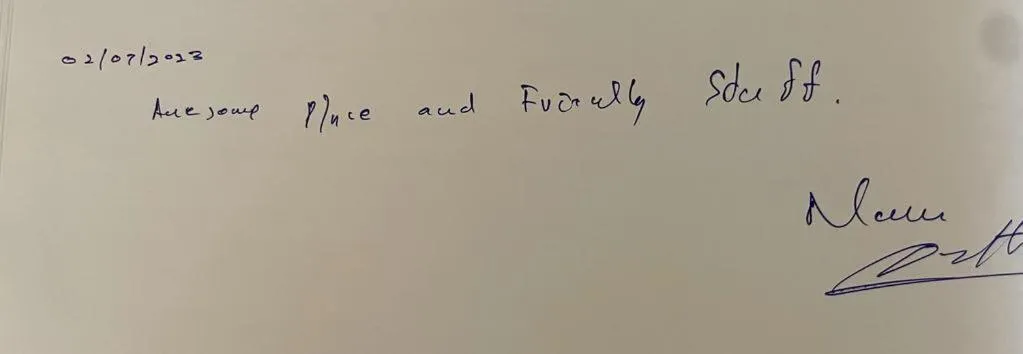 02/07/2023
Awesome Place and Friendly Staff.